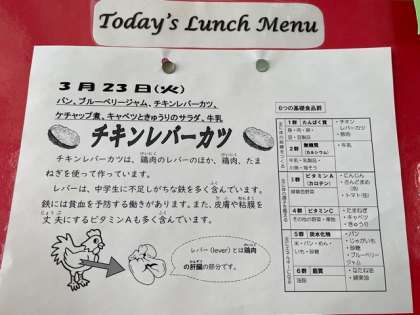 Today's Lunch Menu
3月23日(火)
パン、ブルーベリージャム、チキンレバーカツ、
ケチャップ煮、キャベツときゅうりのサラダ、牛乳
チキンレバーカツ
チキンレバーカツは、鶏肉のレバーのほか、鶏肉、たま
ねぎを使って作っています。
レバーは、中学生に不足しがちな鉄を多く含んています。
鉄には貧血を予防する働きがあります。また、皮膚や粘膜を
丈夫にするビタミンAも多く含んています。
レバー(lever)とは鶏肉
の肝臓の部分です。
6つの基礎食品群
1群 たんぱく質
・チキン
レバーカツ
・豚肉
2群 無機質
(カルシウム)
・牛乳
3群 ビタミンA
(カロテン)
・にんじん
・トマト
4群 ビタミンC
その他の野菜・果物
・たまねぎ
・キャベツ
・きゅうり
5群 炭水化物
・パン
・じゃがいも
・砂糖
・ブルーベリー
ジャム
6群 脂質
油脂
・なたね油